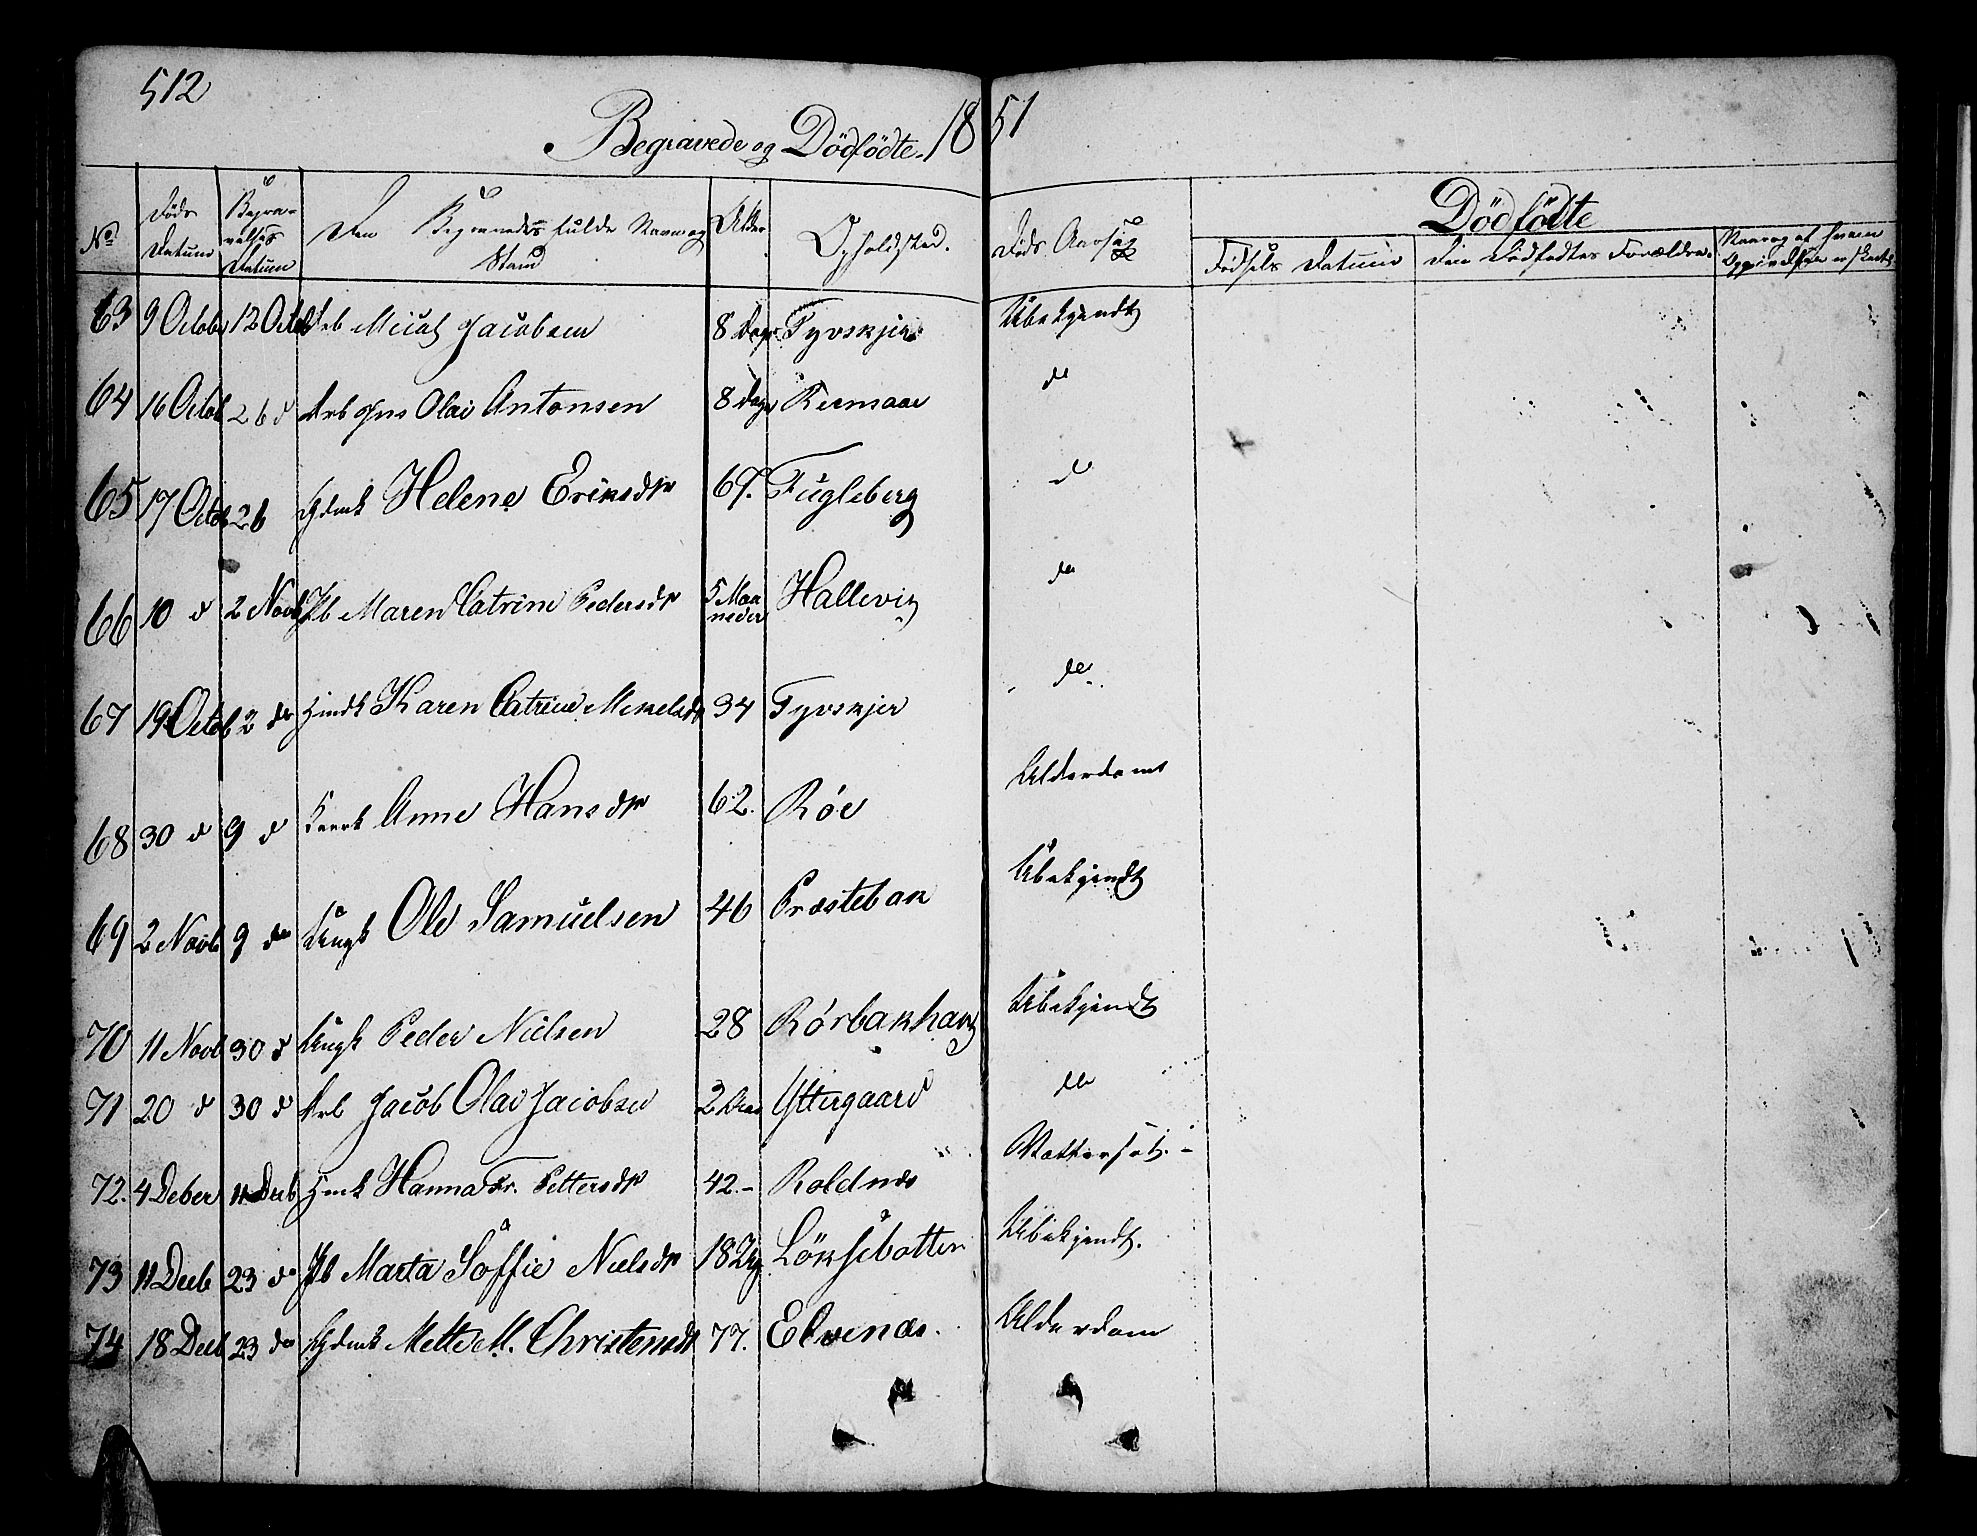 512
Begravede og Dödfödte. 1851
No Döds Datum Begravelses Datum Den Begravedes fulde Navn og Stand Alder Opholdsted. Döds Aarsag Dödfödte
Födsels Datum Den Dödfödtes Forældre.
63 9 Octob 12 Octob Jacobsen 8 Dage Tyvskjer Ubekjendt
64 16 Octob 26 d Jens Olai Antonsen 8 Dage do
65 17 Octob 26 Helene Eriksdtr 67. Fugleberg d
66 10 d 2 Novb Maren Catrine Pedersdtr 5 Maaneder Hallevig do
67 19 Octob 2 do Karen Catrine Mikelsdtr 34 Tyvskjer do
68 30 d 9 d Anne Hansdtr 62. Röe Alderdom
69 2 Novb 9 do Ungk Ole Samuelsen 46 Præstebak Ubekjendt
70 11 Novb 30 d Ungk Peder Nielsen 28 Rörbakhaug Ubekjendt
71 20 d 30 d Jacob Olai Jacobsen 2 Yttergaard do
72. 4 Deber 11 Decb Hanna Fr. Pettersdtr 42.- Roldnes Vattersot.-
73 11 Decb 23 do Marta Soffie Nielsdtr 18 Löksebotten Ubekjendt.
74 18 Decb 23 do Mette M. Christensdtr 77. Elvenæs. Alderdom